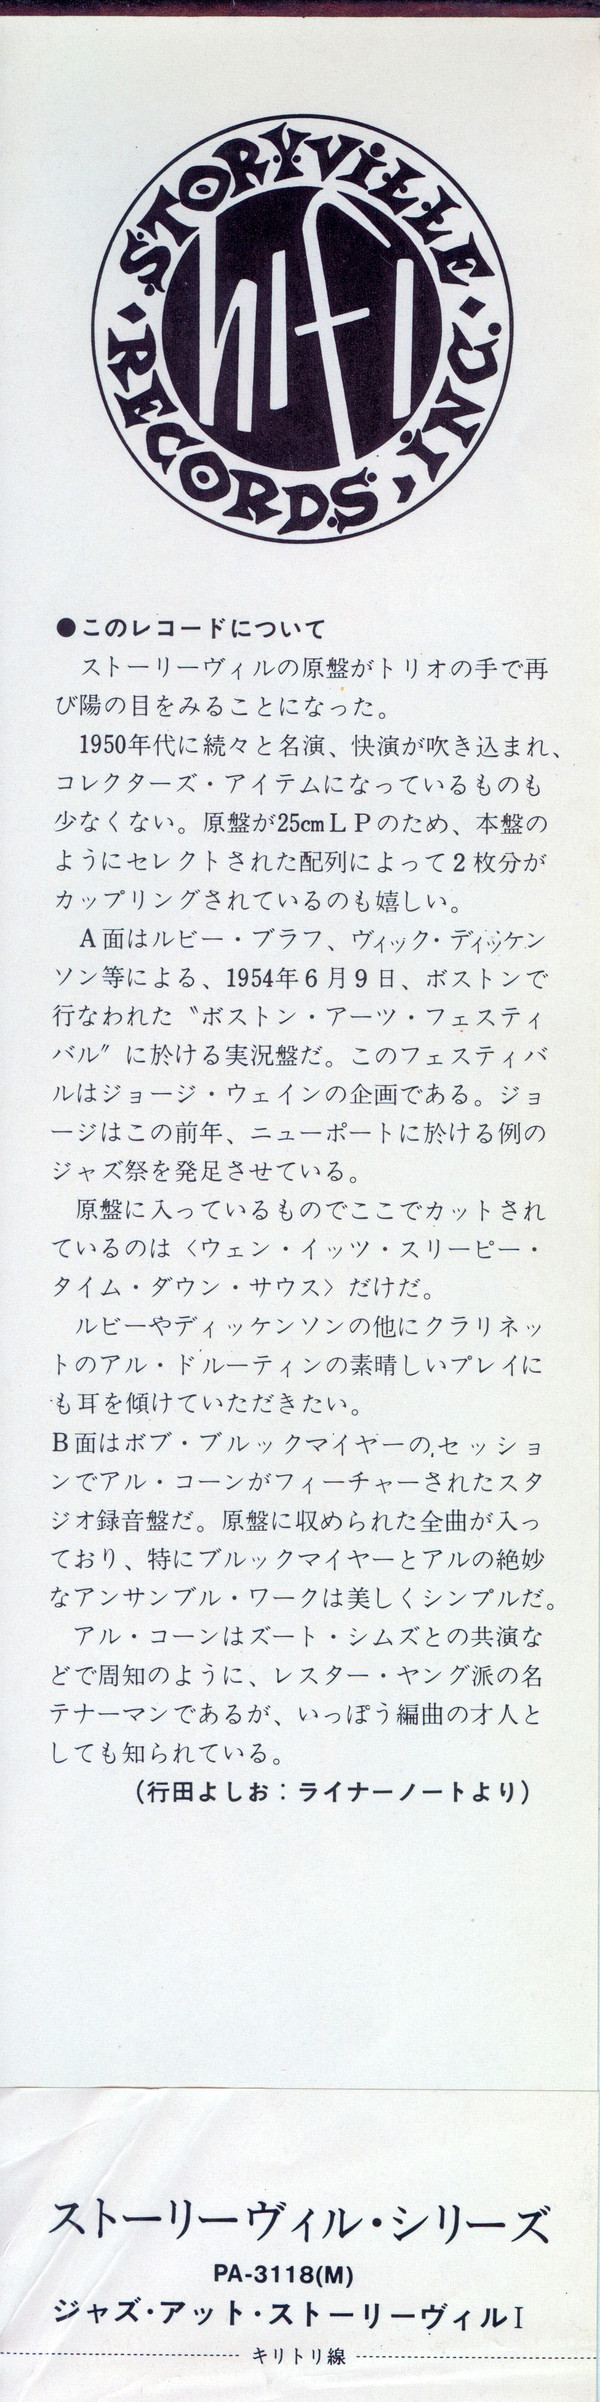 STORYVILLE・RECORDS, INC・
hifi
●このレコードについて
　ストーリーヴィルの原盤がトリオの手で再
び陽の目をみることになった。
　1950年代に続々と名演、快演が吹き込まれ、
コレクターズ・アイテムになっているものも
少なくない。原盤が25cmＬＰのため、本盤の
ようにセレクトされた配列によって２枚分が
カップリングされているのも嬉しい。
　Ａ面はルビー・ブラフ、ヴィック・ディッケン
ソン等による、1954年６月９日、ボストンで
行なわれた〝ボストン・アーツ・フェスティ
バル〟に於ける実況盤だ。このフェスティバ
ルはジョージ・ウェインの企画である。ジョ
ージはこの前年、ニューポートに於ける例の
ジャズ祭を発足させている。
　原盤に入っているものでここでカットされ
ているのは〈ウェン・イッツ・スリーピー・
タイム・ダウン・サウス〉だけだ。
　ルビーやディッケンソンの他にクラリネッ
トのアル・ドルーティンの素晴しいプレイに
も耳を傾けていただきたい。
Ｂ面はボブ・ブルックマイヤーのセッショ
ンでアル・コーンがフィーチャーされたスタ
ジオ録音盤だ。原盤に収められた全曲が入っ
ており、特にブルックマイヤーとアルの絶妙
なアンサンブル・ワークは美しくシンプルだ。
　アル・コーンはズート・シムズとの共演な
どで周知のように、レスター・ヤング派の名
テナーマンであるが、いっぽう編曲の才人と
しても知られている。
（行田よしお：ライナーノートより）
ストーリーヴィル・シリーズ
PA-3118(M)
ジャズ・アット・ストーリーヴィルⅠ
キリトリ線